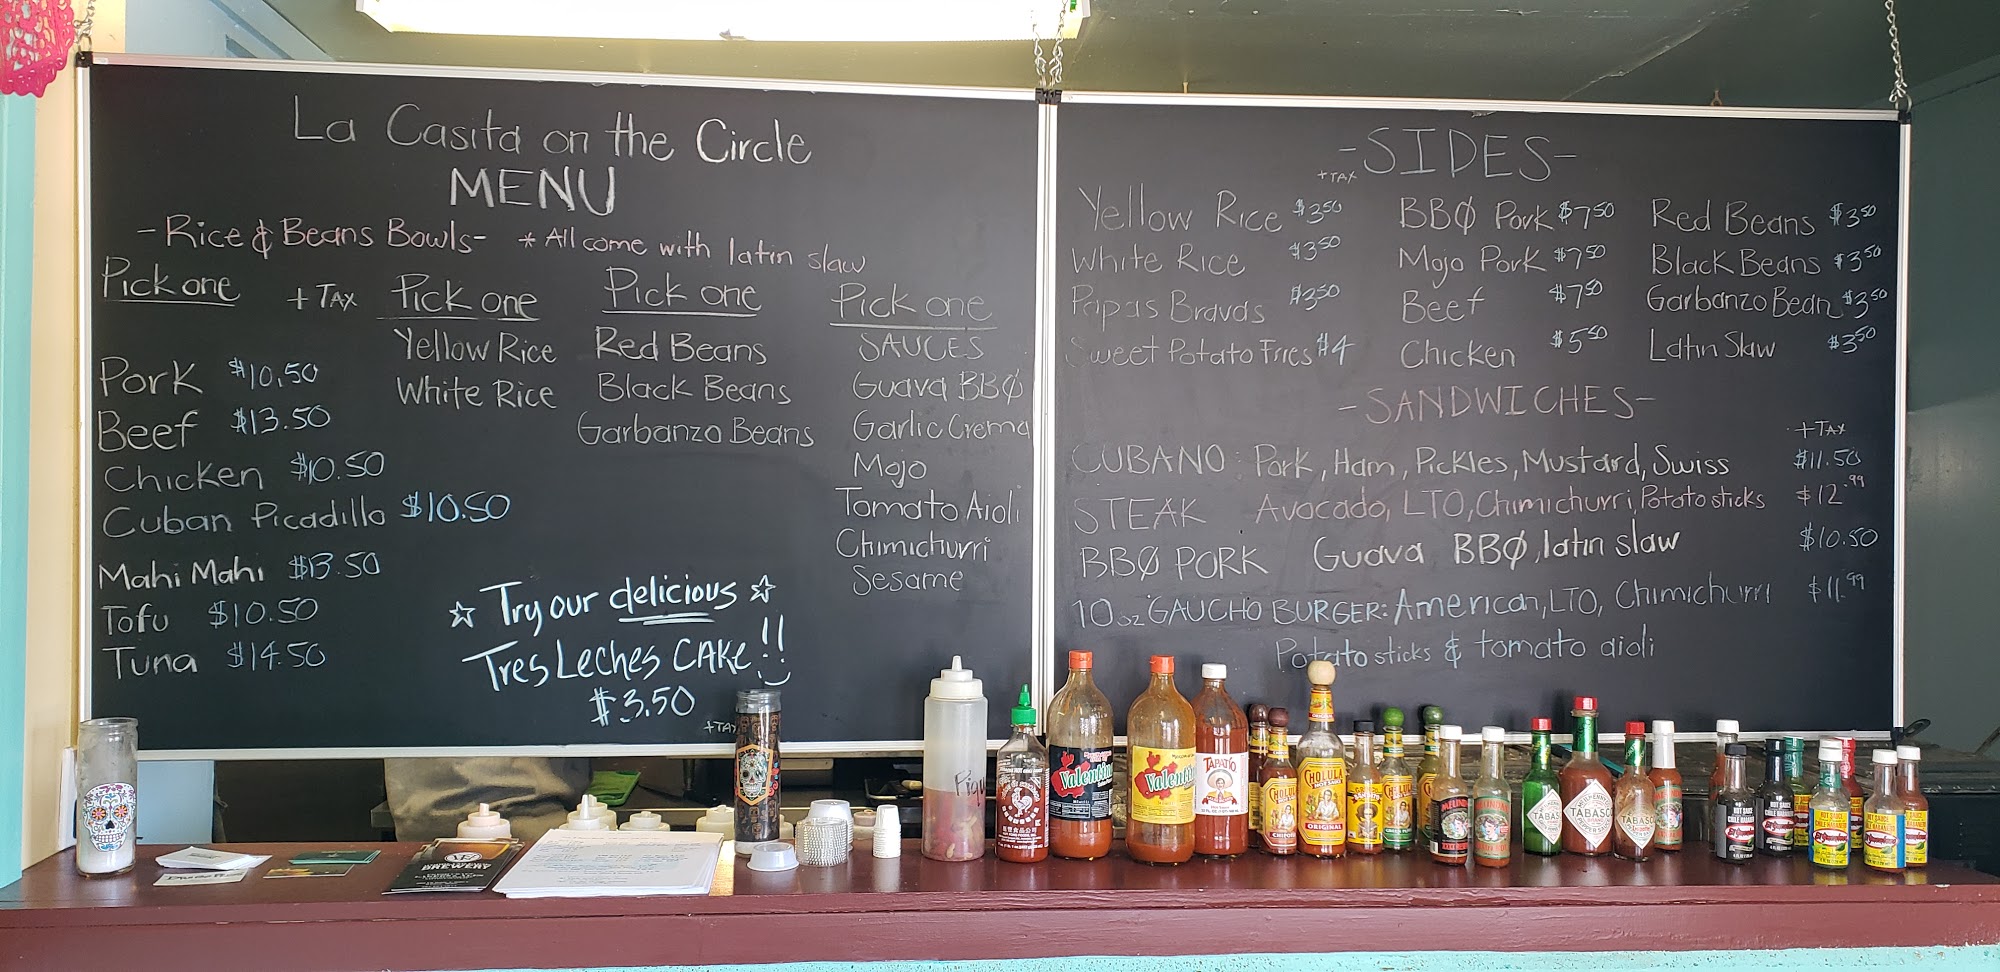 La Casita on the Circle
MENU
-Rice & Beans Bowls- * All come with latin slaw
Pick one
+ TAX
Pork $10.50
Beef $13.50
Chicken $10.50
Cuban Picadillo $10.50
Mahi Mahi $13.50
Tofu $10.50
Tuna $14.50
Pick one
Yellow Rice
White Rice
Pick one
Red Beans
Black Beans
Garbanzo Beans
Pick one
SAUCES
Guava BBQ
Garlic Crema
Mojo
Tomato Aioli
Chimichurri
Sesame
☆ Try our delicious ☆
Tres Leches CAKE!!
$3.50
+TAX
-SIDES-
+TAX
Yellow Rice $3.50
White Rice $3.50
Papas Bravas $3.50
Sweet Potato Fries $4
BBQ Pork $7.50
Mojo Pork $7.50
Beef $7.50
Chicken $5.50
Red Beans $3.50
Black Beans $3.50
Garbanzo Bean $3.50
Latin Slaw $3.50
-SANDWICHES-
+TAX
CUBANO: Pork, Ham, Pickles, Mustard, Swiss $11.50
STEAK Avocado, LTO, Chimichurri, Potato sticks $12.99
BBQ PORK Guava BBQ, latin slaw $10.50
10oz GAUCHO BURGER: American, LTO, Chimichurri $11.99
Potato sticks & tomato aioli
Valentina
Valentina
TAPATIO
CHOLULA
ORIGINAL
TABASCO
TABASCO
TABASCO